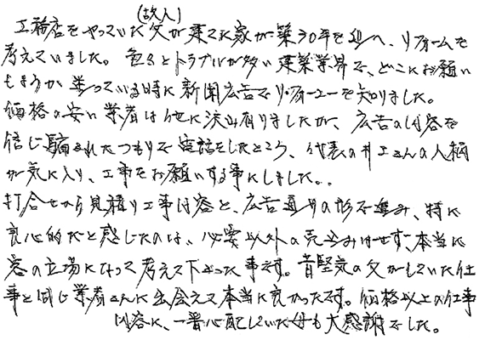 (故人)
工務店をやっていた父が建てた家が築30年を迎へ、リフォームを
考えていました。色々とトラブルが多い建築業界で、どこにお願い
しようか迷っている時に新聞広告でリ・フォーユーを知りました。
価格の安い業者は他に沢山有りましたが、広告の内容を
信じ騙されたつもりで電話をしたところ、代表の井上さんの人柄
が気に入り、工事をお願いする事にしました。
打合せから見積り工事内容と、広告通りの形で進み、特に
良心的だと感じたのは、必要以外の売込みはせず、本当に
客の立場になって考えて下さった事です。昔堅気の父がしていた仕
事と同じ業者さんに出会えて本当に良かったです。価格以上の仕事
内容に、一番心配していた母も大感謝でした。